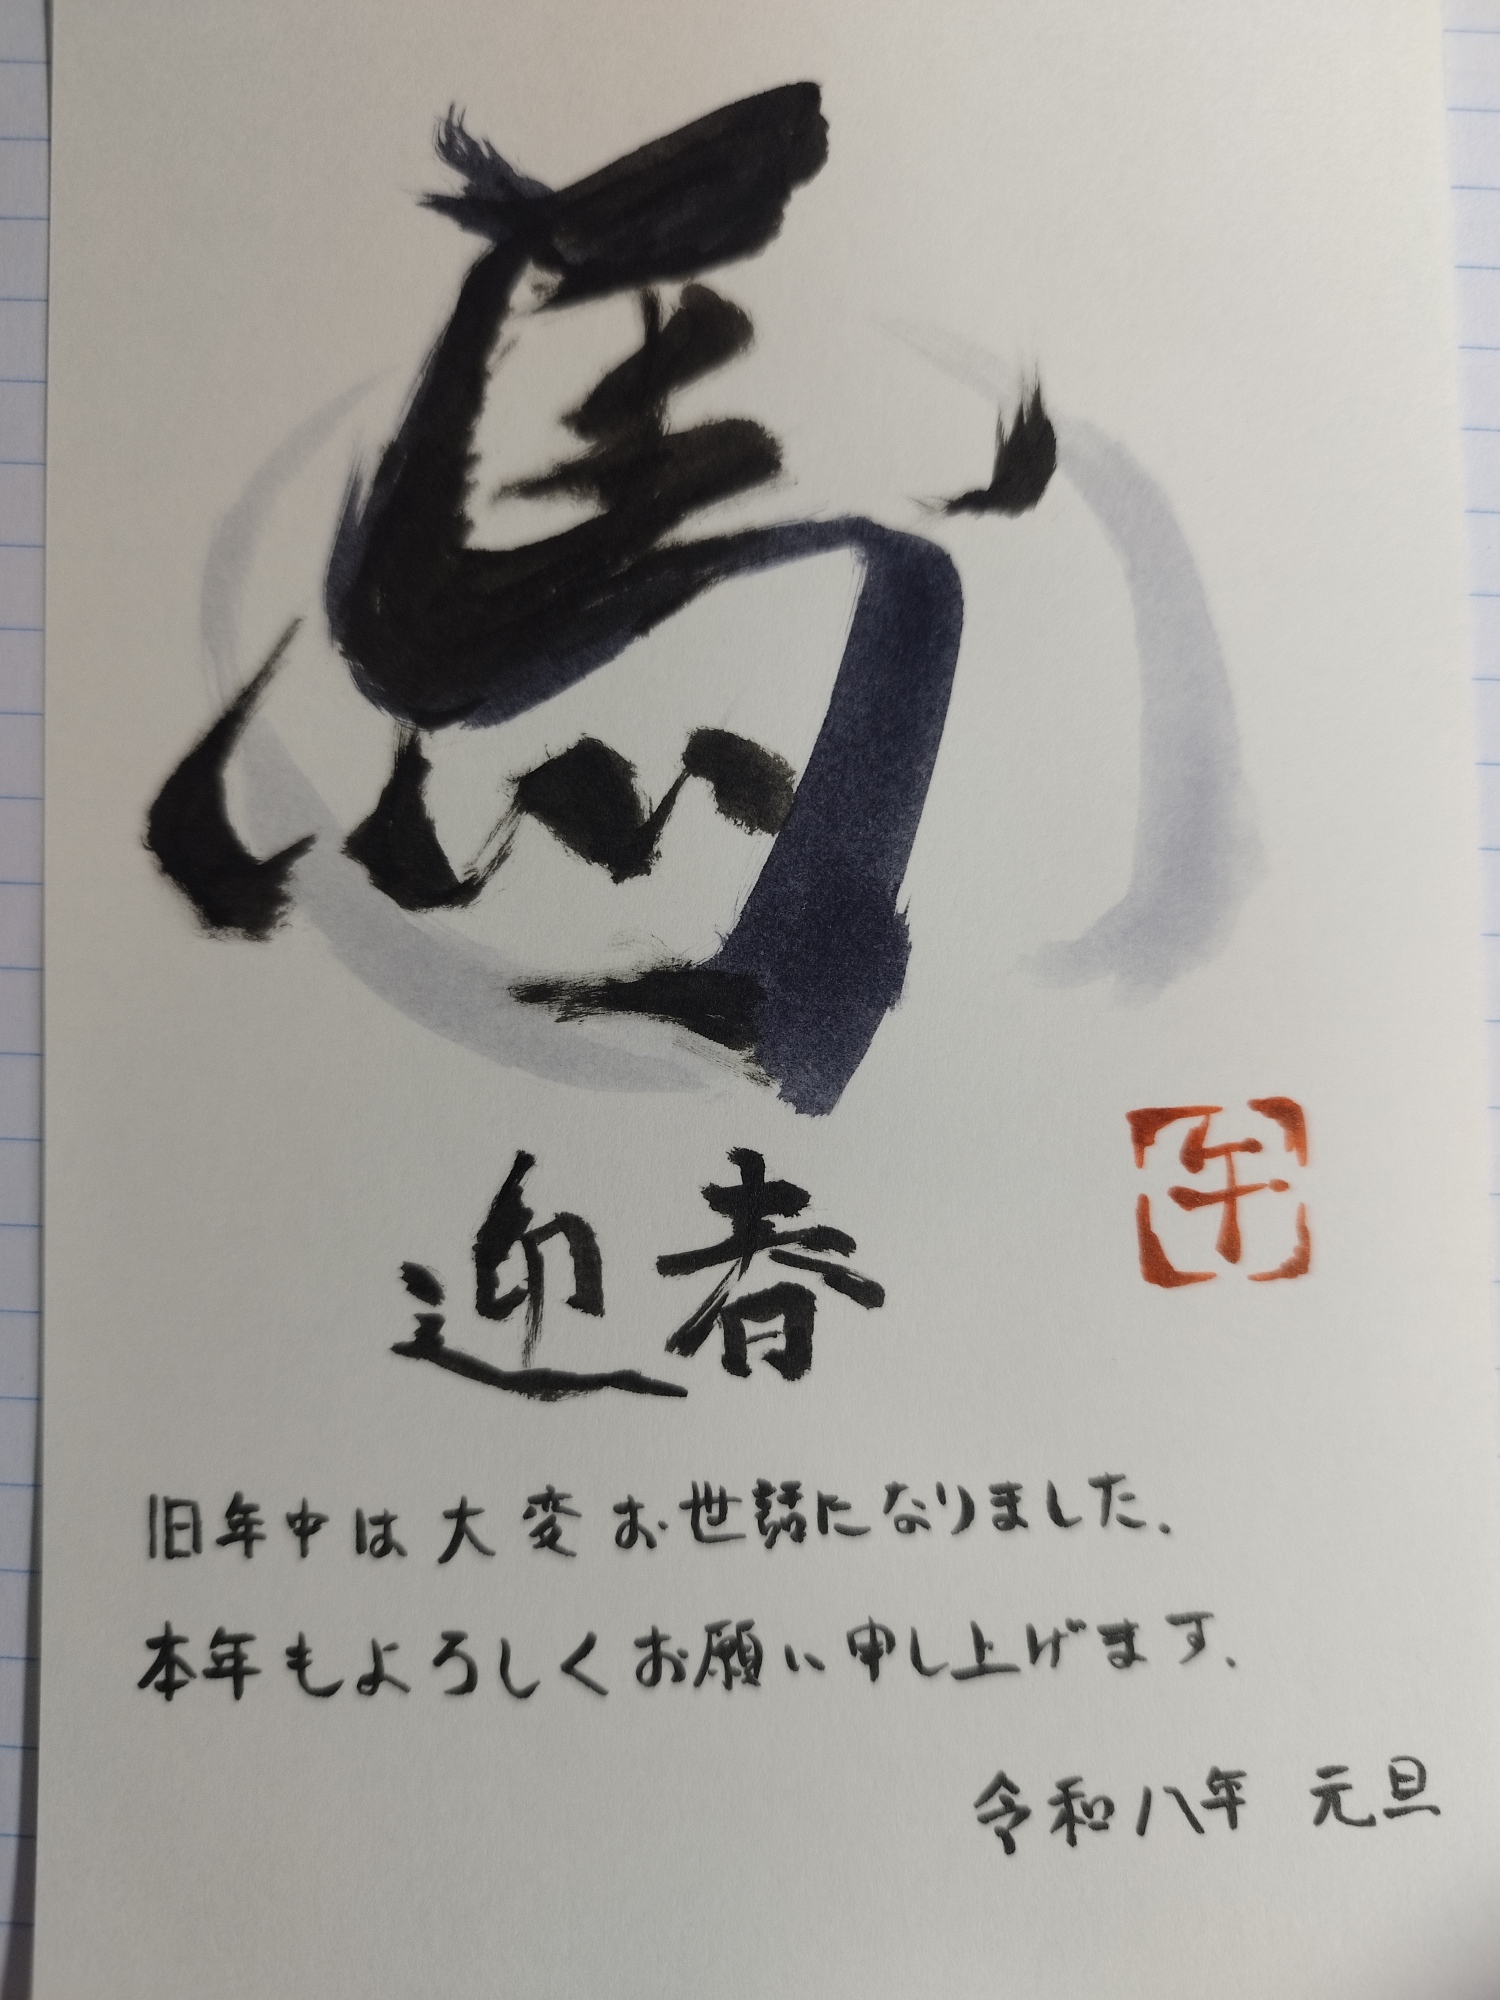 馬
午
迎春
旧年中は大変お世話になりました.
本年もよろしくお願い申し上げます.
令和八年 元旦